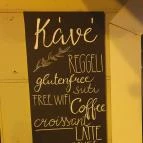 Kávé
REGGELI
glutenfree
suti
FREE WIFI
Coffee
croissant
LATTE